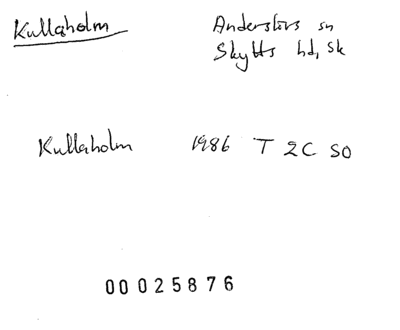 Kullaholm Anderslövs sn
Skytts hd, Sk
Kullaholm 1986 T 2C SO
00025876